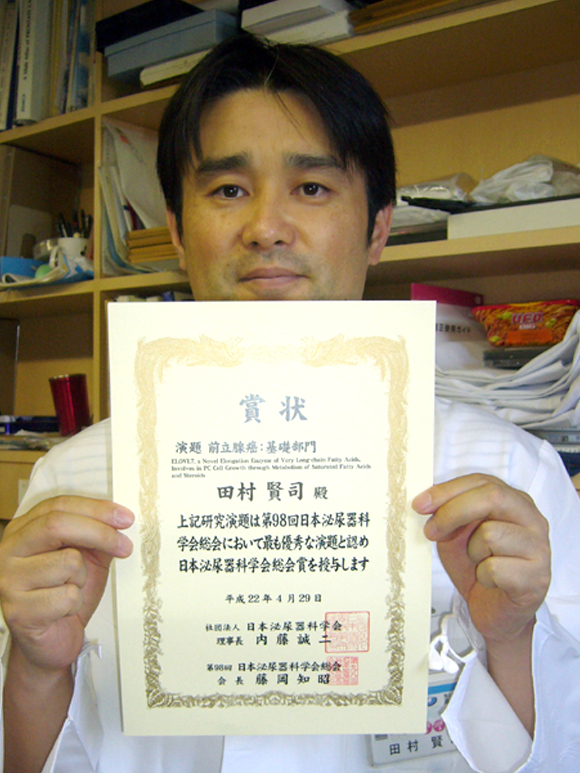 賞状
演題 前立腺癌：基礎部門
ELOVL7, a Novel Elongation Enzyme of Very Long-chain Fatty Acids,
Involves in PC Cell Growth through Metabolism of Saturated Fatty Acids
and Steroids
田村 賢司 殿
上記研究演題は第98回日本泌尿器科
学会総会において最も優秀な演題と認め
日本泌尿器科学会総会賞を授与します
平成22年4月29日
社団法人 日本泌尿器科学会
理事長 内藤誠二
第98回 日本泌尿器科学会総会
会長 藤岡知昭
田村 賢